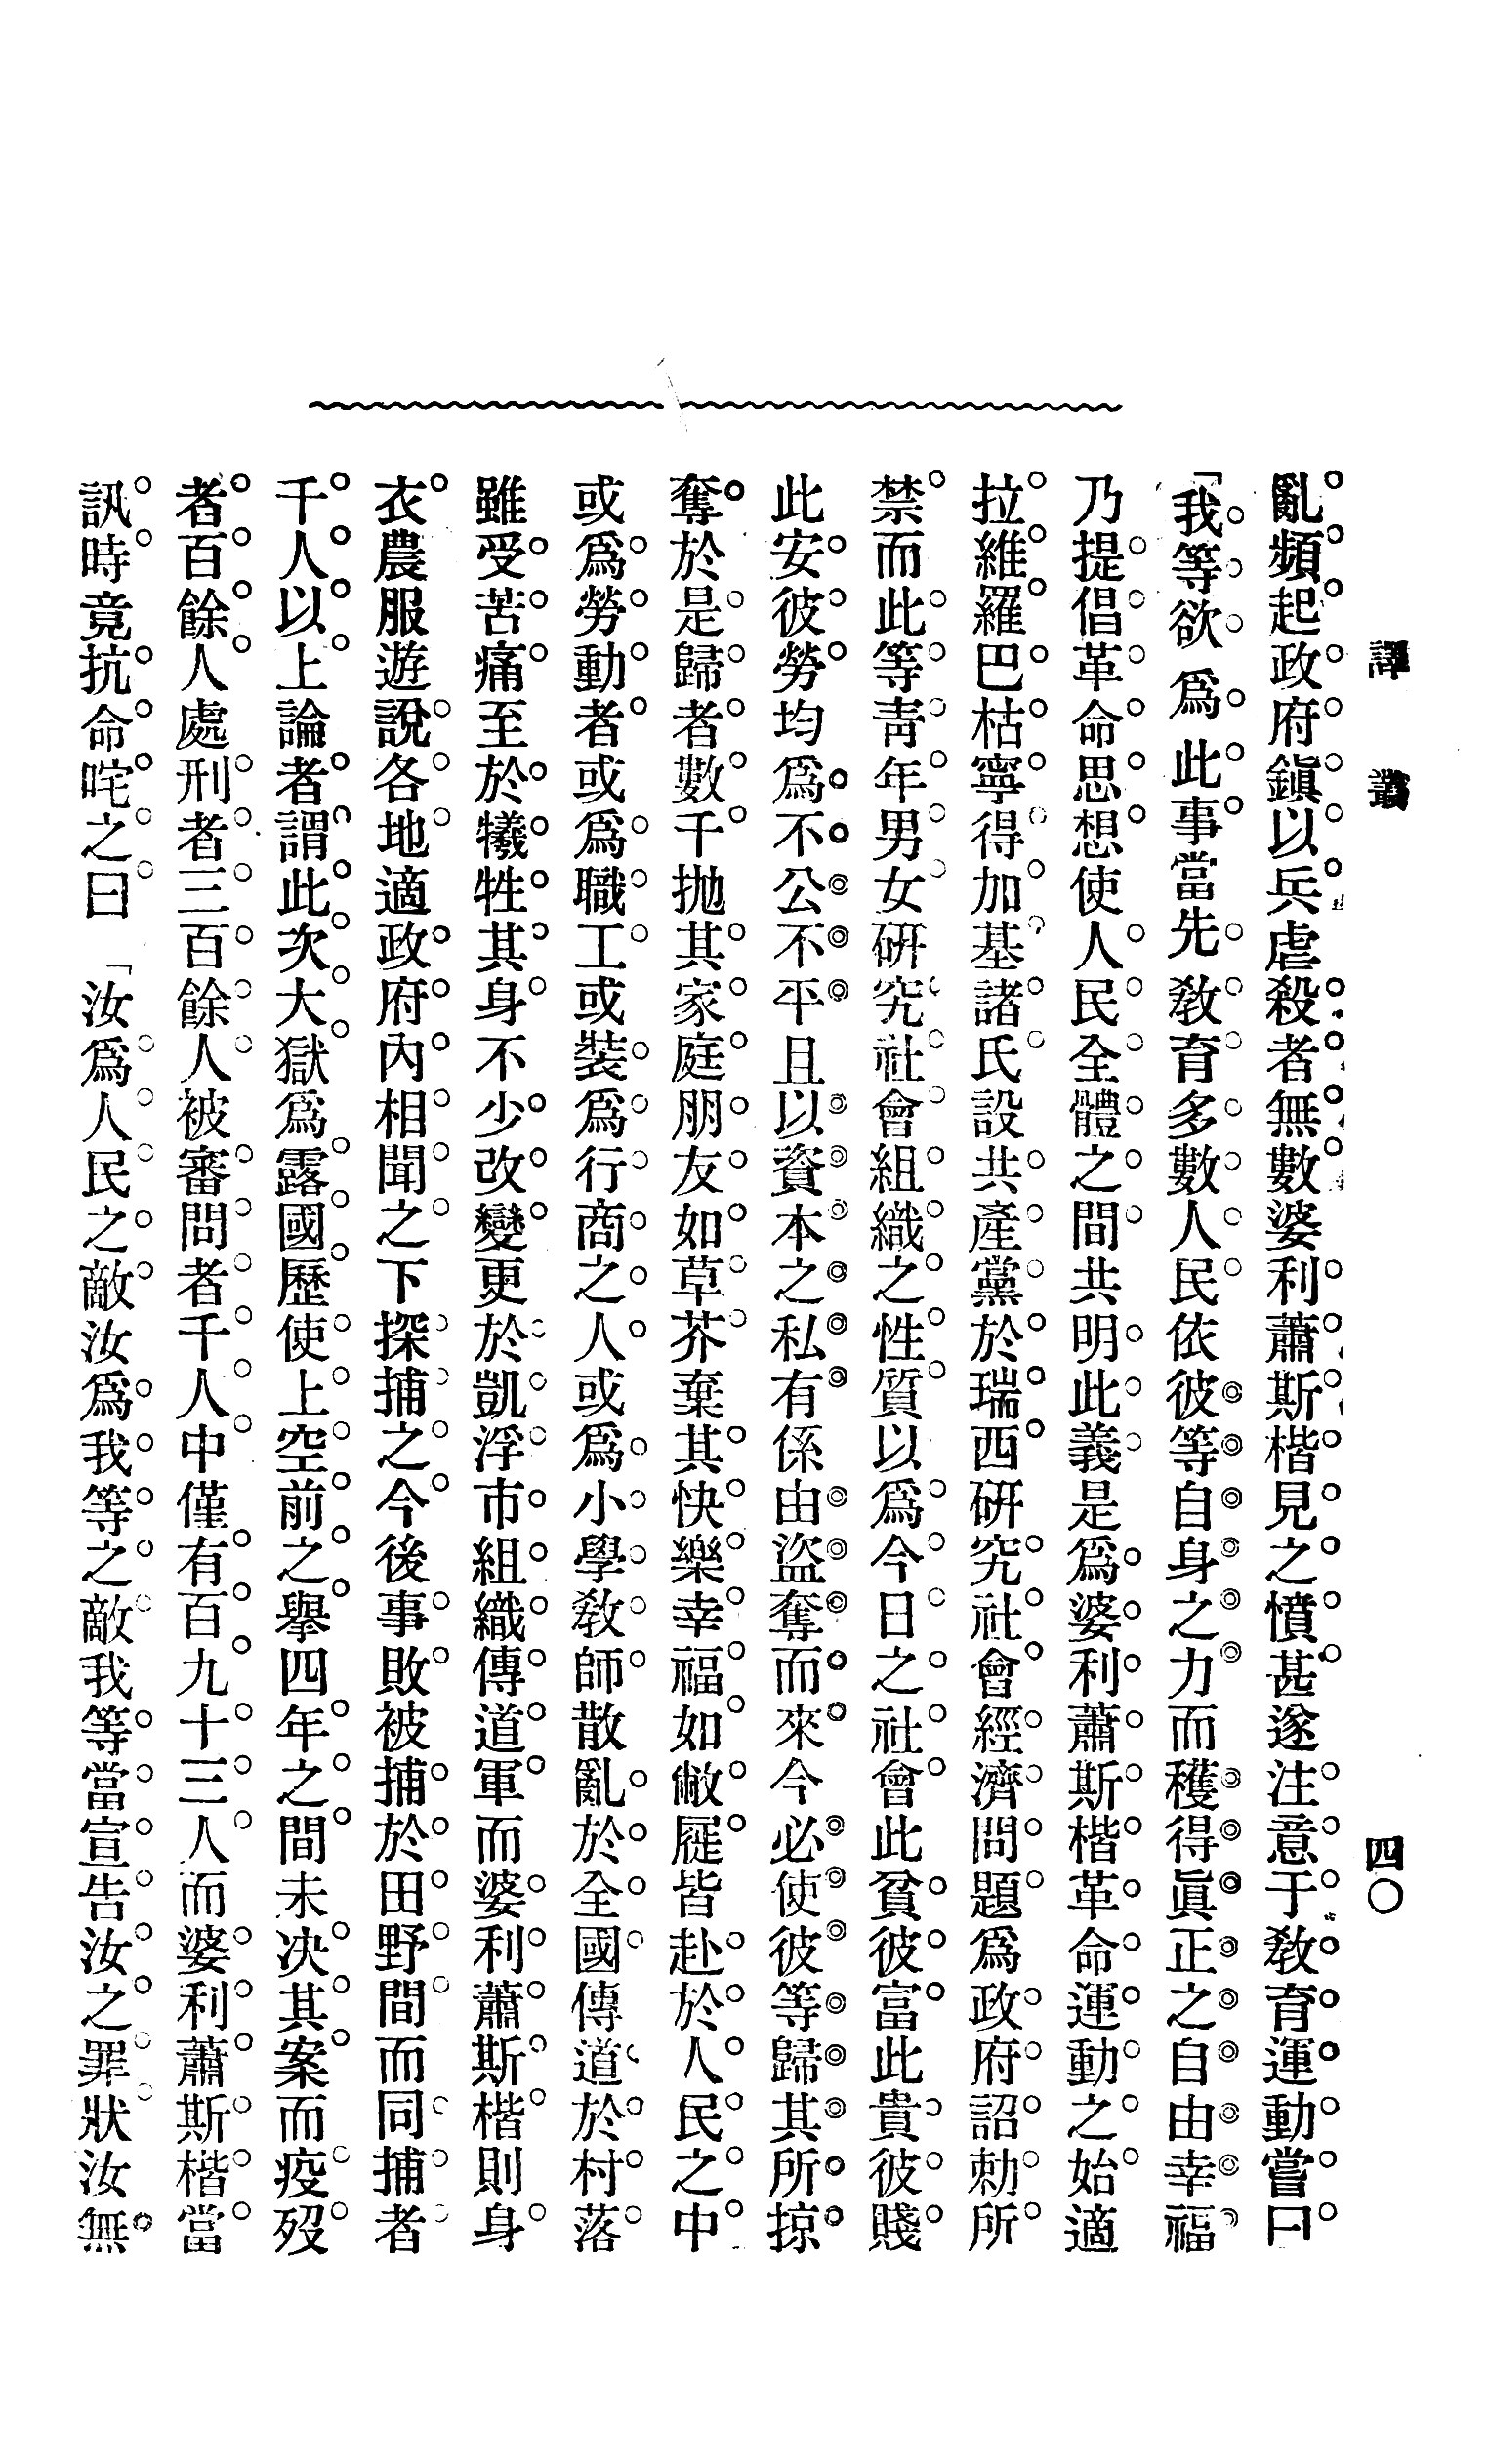 譯叢
四〇
亂頻起政府鎭以兵虐殺者無數婆利蕭斯楷見之憤甚遂注意于敎育運動嘗曰
「我等欲爲此事當先敎育多數人民依彼等自身之力而穫得眞正之自由幸福
乃提倡革命思想使人民全體之間共明此義是爲婆利蕭斯楷革命運動之始適
拉維羅巴枯寧得加基諸氏設共產黨於瑞西硏究社會經濟問題爲政府詔勅所
禁而此等靑年男女硏究社會組織之性質以爲今日之社會此貧彼富此貴彼賤
此安彼勞均爲不公不平且以資本之私有係由盜奪而來今必使彼等歸其所掠
奪於是歸者數千抛其家庭朋友如草芥棄其快樂幸福如敝屣皆赴於人民之中
或爲勞動者或爲職工或裝爲行商之人或爲小學敎師散亂於全國傳道於村落
雖受苦痛至於犧牲其身不少改變更於凱浮市組織傳道軍而婆利蕭斯楷則身
衣農服遊說各地適政府內相聞之下探捕之今後事敗被捕於田野間而同捕者
千人以上論者謂此次大獄爲露國歷使上空前之擧四年之間未决其案而疫歿
者百餘人處刑者三百餘人被審問者千人中僅有百九十三人而婆利蕭斯楷當
訊時竟抗命咤之曰「汝爲人民之敵汝爲我等之敵我等當宣告汝之罪狀汝無